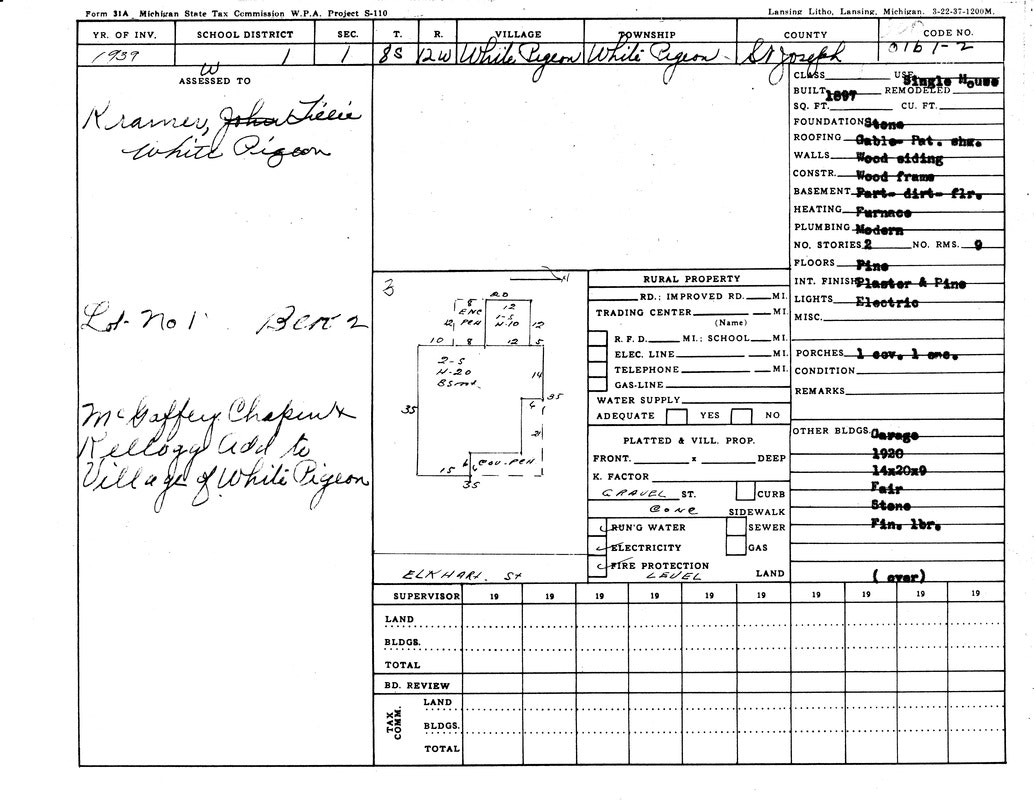 Form 31A Michigan State Tax Commission W.P.A. Project S-110
Lansing Litho, Lansing, Michigan. 3-22-37-1200M.
YR. OF INV. SCHOOL DISTRICT SEC. T. R. VILLAGE TOWNSHIP COUNTY CODE NO.
1939 W 1 1 8S 12W White Pigeon White Pigeon St Joseph 0161-2
ASSESSED TO
Kramer, John Tillie
White Pigeon
Lot- No 1 Blk 2
McGaffey Chapin &
Kellogg Add to
Village of White Pigeon
3
N
20
8
ENC
PCH
12
1-S
N-10
12
12
10 8 12 5
2-S
N-20
Bsmt.
14
35
35
6
21
15 6 COV. PCH
35
ELKHART. ST
RURAL PROPERTY
RD.; IMPROVED RD. MI.
TRADING CENTER MI.
(Name)
R. F. D. MI.; SCHOOL MI.
ELEC. LINE MI.
TELEPHONE MI.
GAS-LINE
WATER SUPPLY
ADEQUATE YES NO
PLATTED & VILL. PROP.
FRONT. x DEEP
K. FACTOR
GRAVEL ST. CURB
CONC SIDEWALK
RUN'G WATER SEWER
ELECTRICITY GAS
FIRE PROTECTION
LEVEL LAND
CLASS USE Single House
BUILT 1897 REMODELED
SQ. FT. CU. FT.
FOUNDATION Stone
ROOFING Gable- Pat. shg.
WALLS Wood siding
CONSTR. Wood frame
BASEMENT Part- dirt- flr.
HEATING Furnace
PLUMBING Modern
NO. STORIES 2 NO. RMS. 9
FLOORS Pine
INT. FINISH Plaster & Pine
LIGHTS Electric
MISC.
PORCHES 1 cov. 1 enc.
CONDITION
REMARKS
OTHER BLDGS. Garage
1920
14x20x9
Fair
Stone
Fin. lbr.
( over)
SUPERVISOR 19 19 19 19 19 19 19 19 19 19
LAND
BLDGS.
TOTAL
BD. REVIEW
TAX COMM.
LAND
BLDGS.
TOTAL